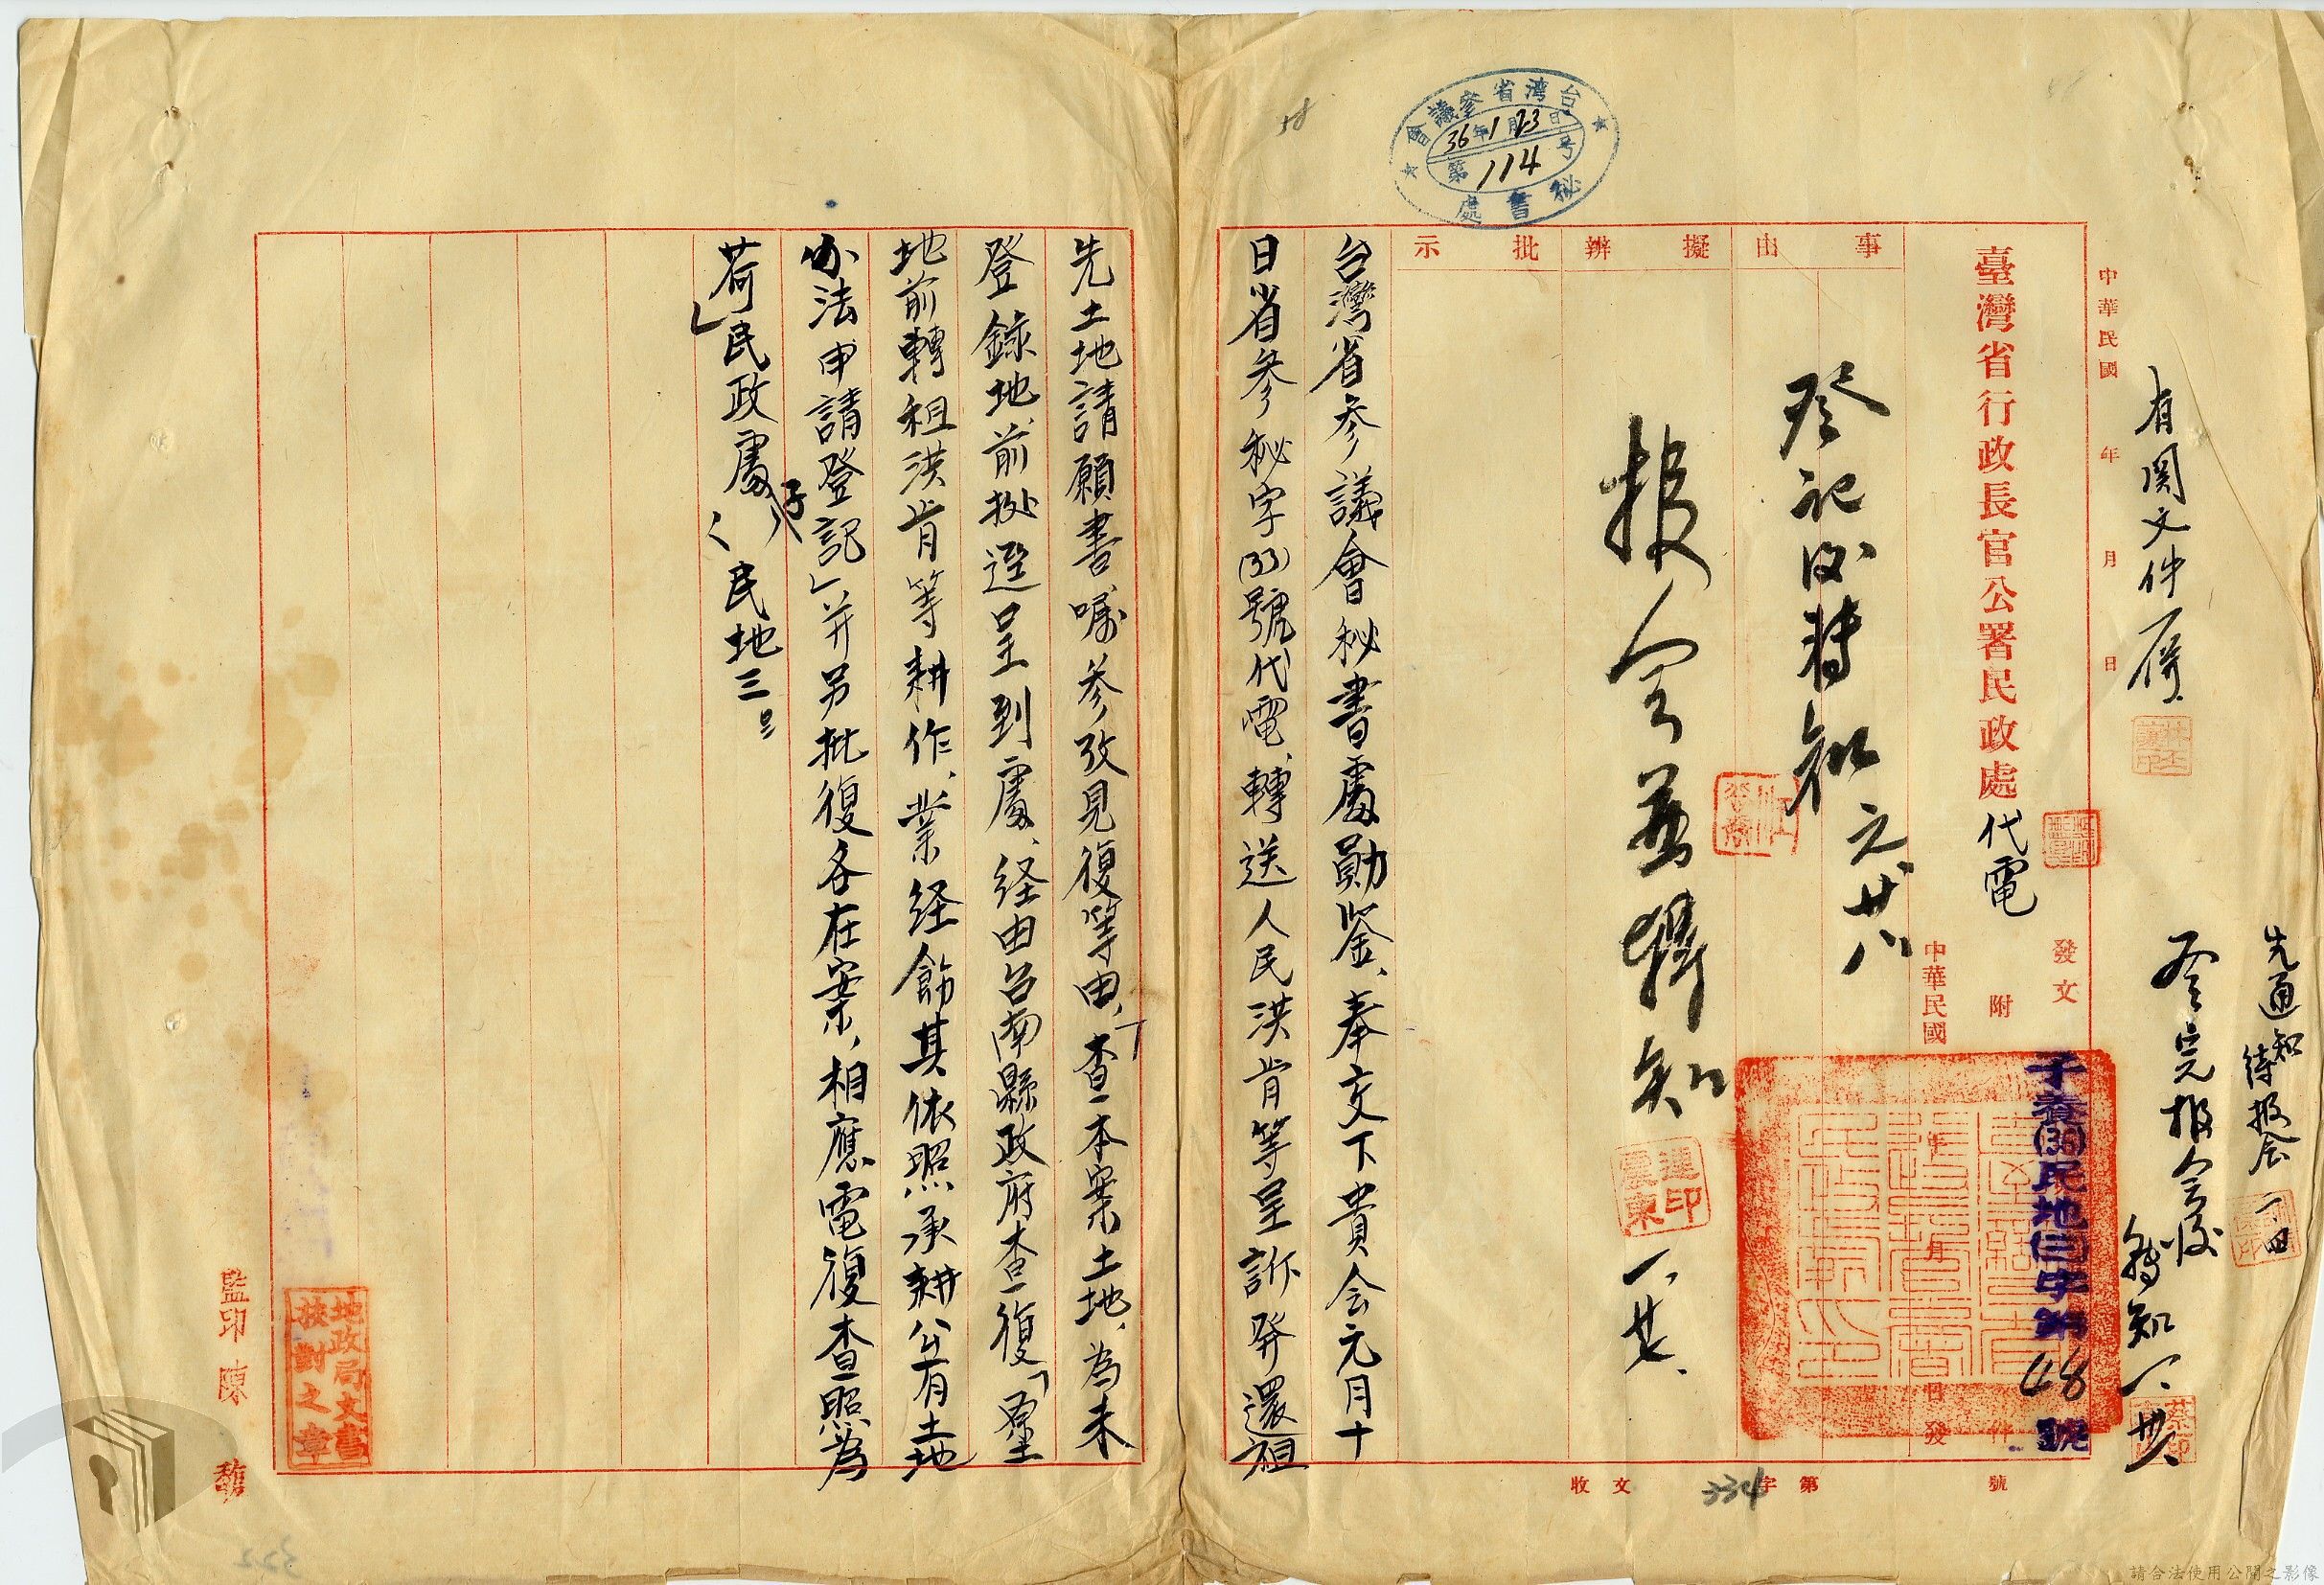 台湾省參議會
36年1月23日
第114号
秘書處
58
先通知待报会 一、四
查完报会後
轉知 一、廿八
有関文件存
中華民國 年 月 日
臺灣省行政長官公署民政處代電
發文
子養(36)民地(三)字第48號
附 件
中華民國 年 月 日發
事由
擬辦
批示
登记後转知 元廿八
报会並轉知
連震東印
一、廿七、
台灣省参議會秘書處勛鑒、奉交下貴会元月十
日省参秘字(33)號代電、轉送人民洪肯等呈訴發還祖
先土地請願書、囑参攷見復等由、查本案土地、為未
登錄地、前拠逕呈到處、経由台南縣政府查復「原墾
地前轉租洪肯等耕作、業経飭其依照承耕公有土地
办法申請登記」并另批復各在案、相應電復查照為
荷」民政處子 民地三
監印 陳
地政局文書
校對之章
收文 字第 334 號
請合法使用公開之影像